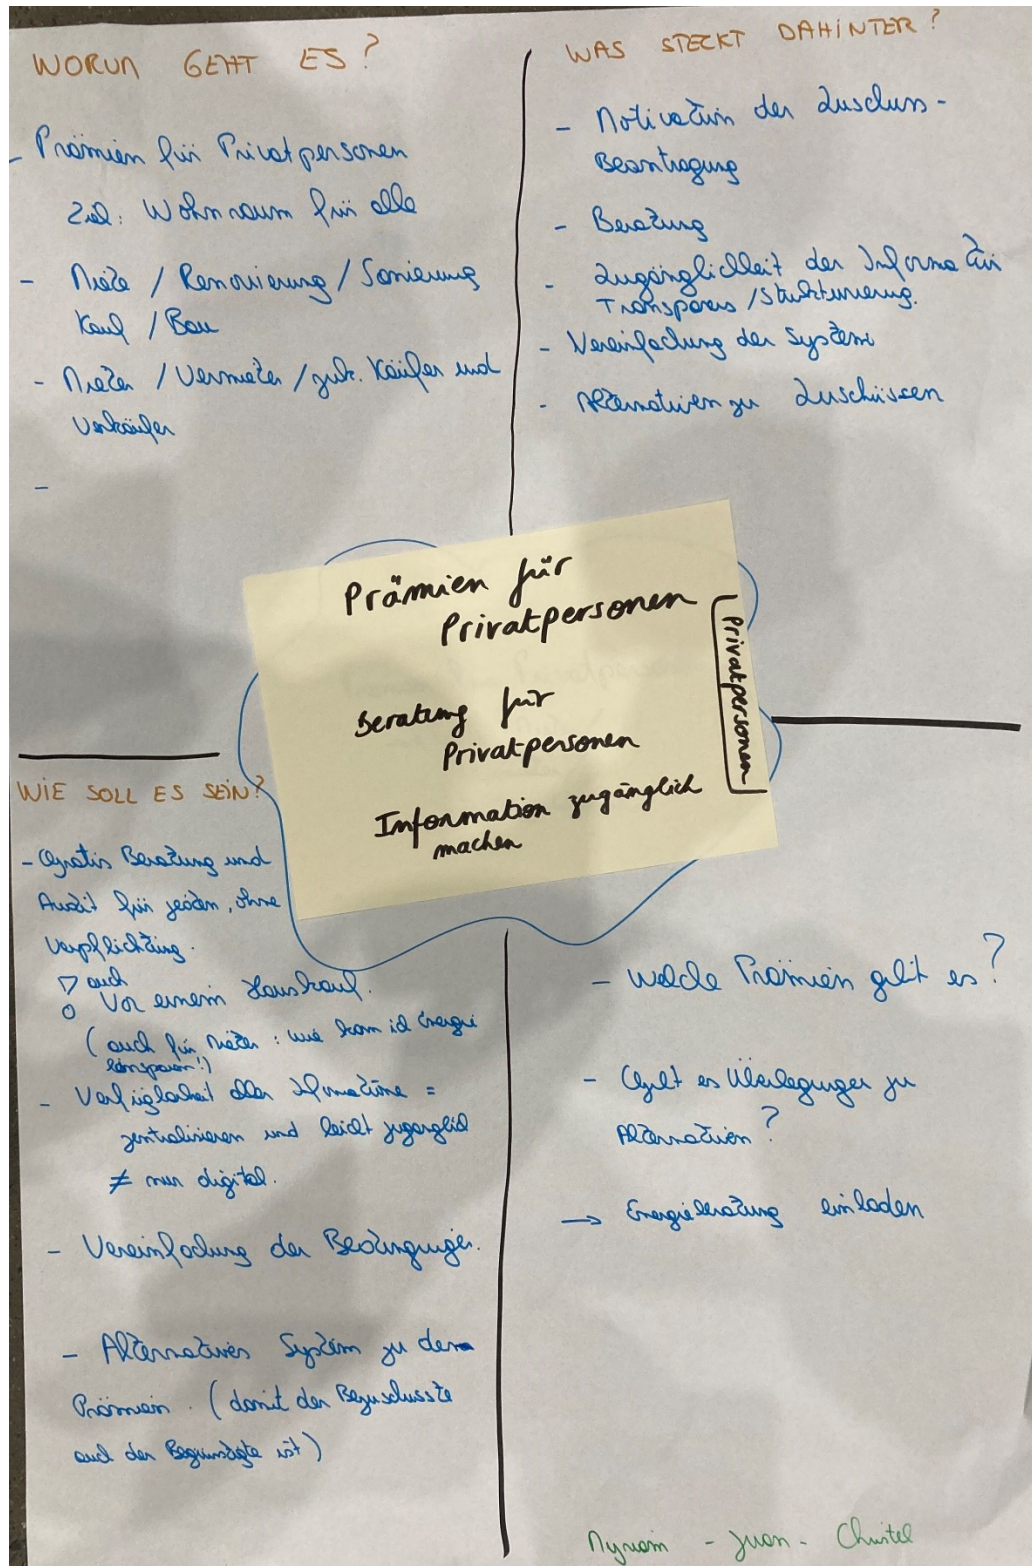 WORUM GEHT ES?
- Prämien für Privatpersonen
Ziel: Wohnraum für alle
- Miete / Renovierung / Sanierung
Kauf / Bau
- Mieter / Vermieter / zuk. Käufer und
Verkäufer
-
WAS STECKT DAHINTER?
- Motivation der Zuschuss-
Beantragung
- Beratung
- Zugänglichkeit der Information
Transparenz / Strukturierung.
- Vereinfachung der Systeme
- Alternativen zu Zuschüssen
Prämien für
Privatpersonen
Beratung für
Privatpersonen
Information zugänglich
machen
Privatpersonen
WIE SOLL ES SEIN?
- Gratis Beratung und
Audit für jeden, ohne
Verpflichtung.
auch
Vor einem Hauskauf.
(auch für Mieter: wie kann ich Energie
einsparen!)
- Verfügbarkeit aller Informationen =
zentralisieren und leicht zugänglich
≠ nur digital.
- Vereinfachung der Bedingungen.
- Alternatives System zu den
Prämien. (damit der Bezuschusste
auch der Begünstigte ist)
- Welche Prämien gibt es?
- Gibt es Überlegungen zu
Alternativen?
→ Energieberatung einladen
- Juan -